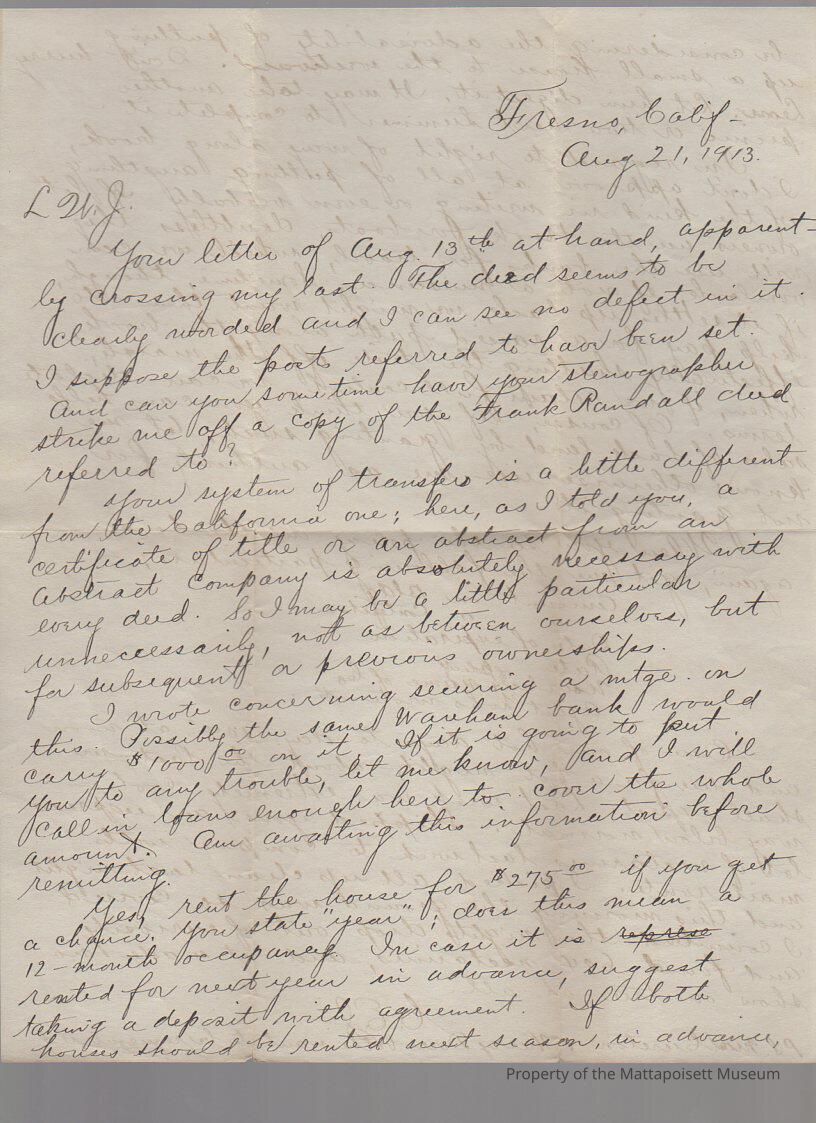 Fresno, Calif-
Aug 21, 1913.
L W. J.
Your letter of Aug. 13th at hand, apparent-
ly crossing my last. The deed seems to be
clearly worded and I can see no defect in it.
I suppose the posts referred to have been set.
And can you sometime have your stenographer
strike me off a copy of the Frank Randall deed
referred to?
Your system of transfers is a little different
from the California one; here, as I told you, a
certificate of title or an abstract from an
abstract company is absolutely necessary with
every deed. So I may be a little particular
unnecessarily, not as between ourselves, but
for subsequent or previous ownerships.
I wrote concerning securing a mtge. on
this. Possibly the same Wareham bank would
carry $1000 00 on it. If it is going to put
you to any trouble, let me know, and I will
call in loans enough here to cover the whole
amount. Am awaiting this information before
remitting.
Yes, rent the house for $275 00 if you get
a chance. You state "year"; does this mean a
12-month occupancy. In case it is represe
rented for next year in advance, suggest
taking a deposit with agreement. If both
houses should be rented next season, in advance,
Property of the Mattapoisett Museum